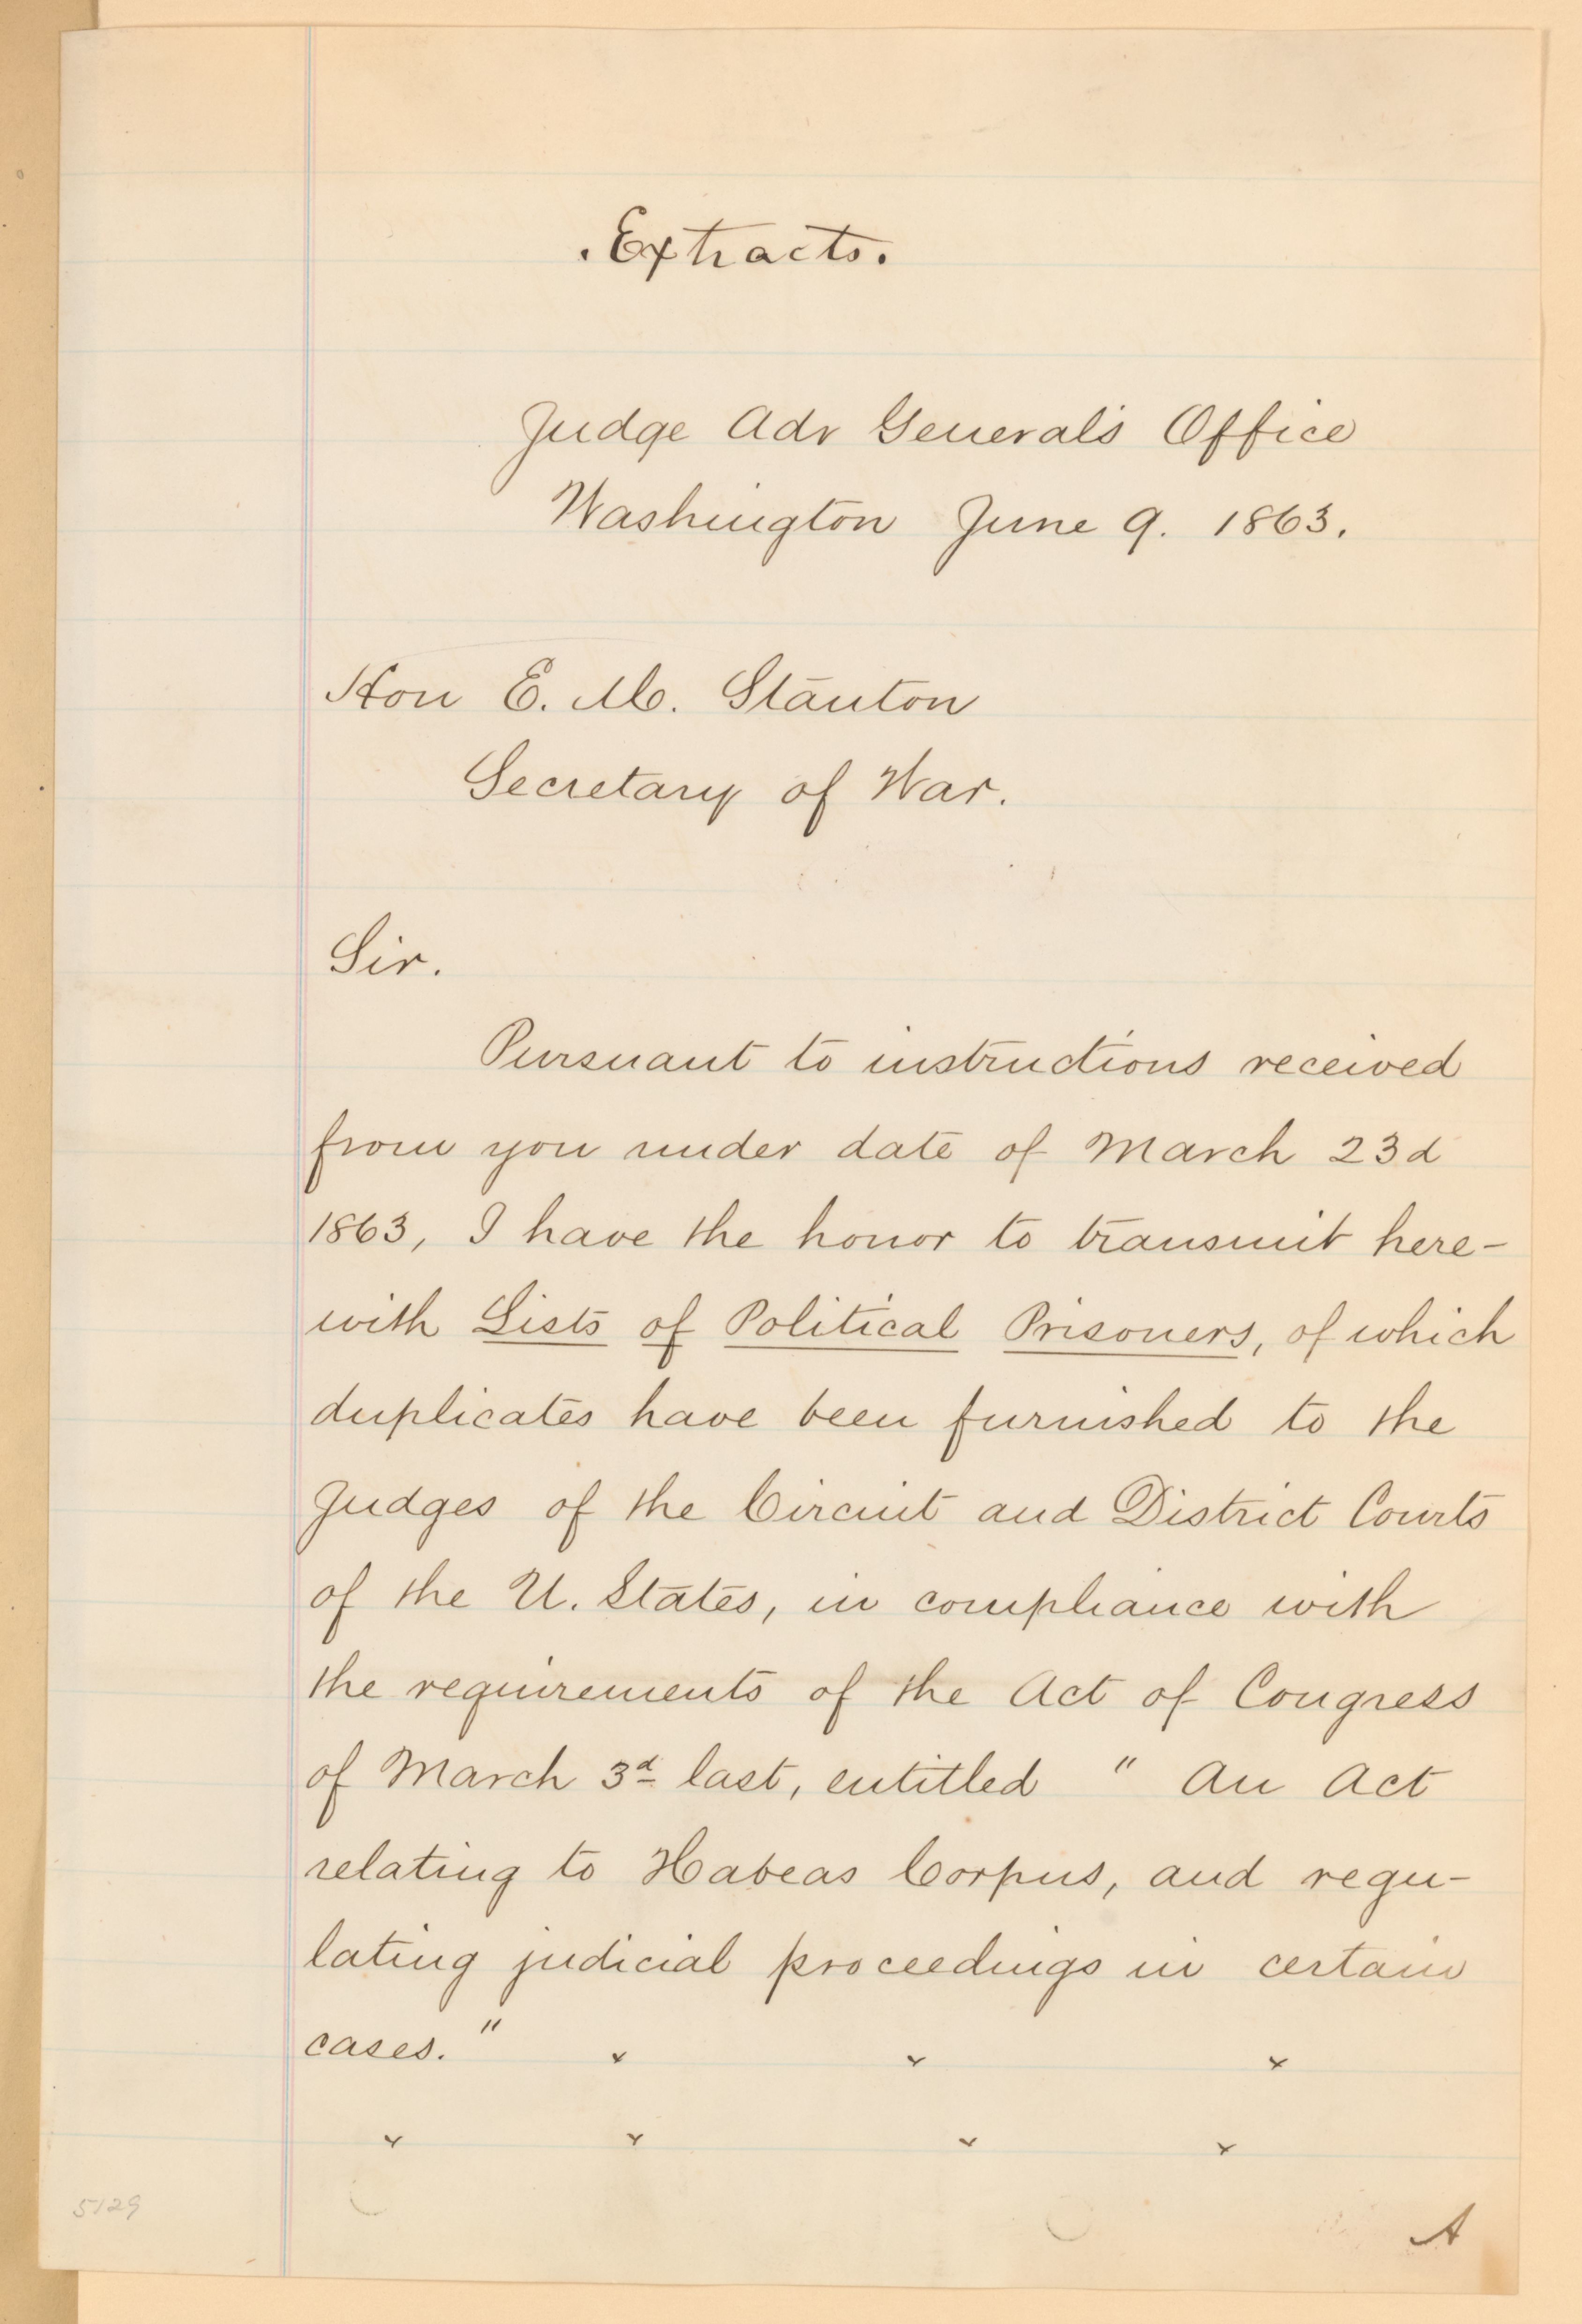 . Extracts.
Judge Adv General's Office
Washington June 9. 1863.
Hon E. M. Stanton
Secretary of War.
Sir.
Pursuant to instructions received
from you under date of March 23d
1863, I have the honor to transmit here-
with Lists of Political Prisoners, of which
duplicates have been furnished to the
Judges of the Circuit and District Courts
of the U. States, in compliance with
the requirements of the Act of Congress
of March 3d last, entitled " An Act
relating to Habeas Corpus, and regu-
lating judicial proceedings in certain
cases." x x x
x x x x
5129
A